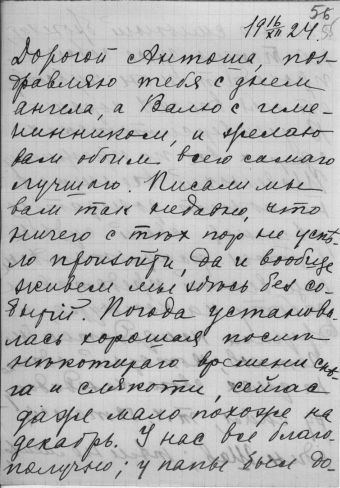 56
19 16/XII 24.
Дорогой Антоша, поз-
дравляю тебя с днем
ангела, а Валю с име-
нинником, и желаю
вам обоим всего самаго
лучшаго. Писали мы
вам так недавно, что
ничего с тѣх пор не успѣ-
ло произойти, да и вообще
живем мы здѣсь без со-
бытій. Погода установи-
лась хорошая послѣ
нѣкотораго времени снѣ-
га и слякоти, сейчас
даже мало похоже на
декабрь. У нас все благо-
получно; у папы был до-